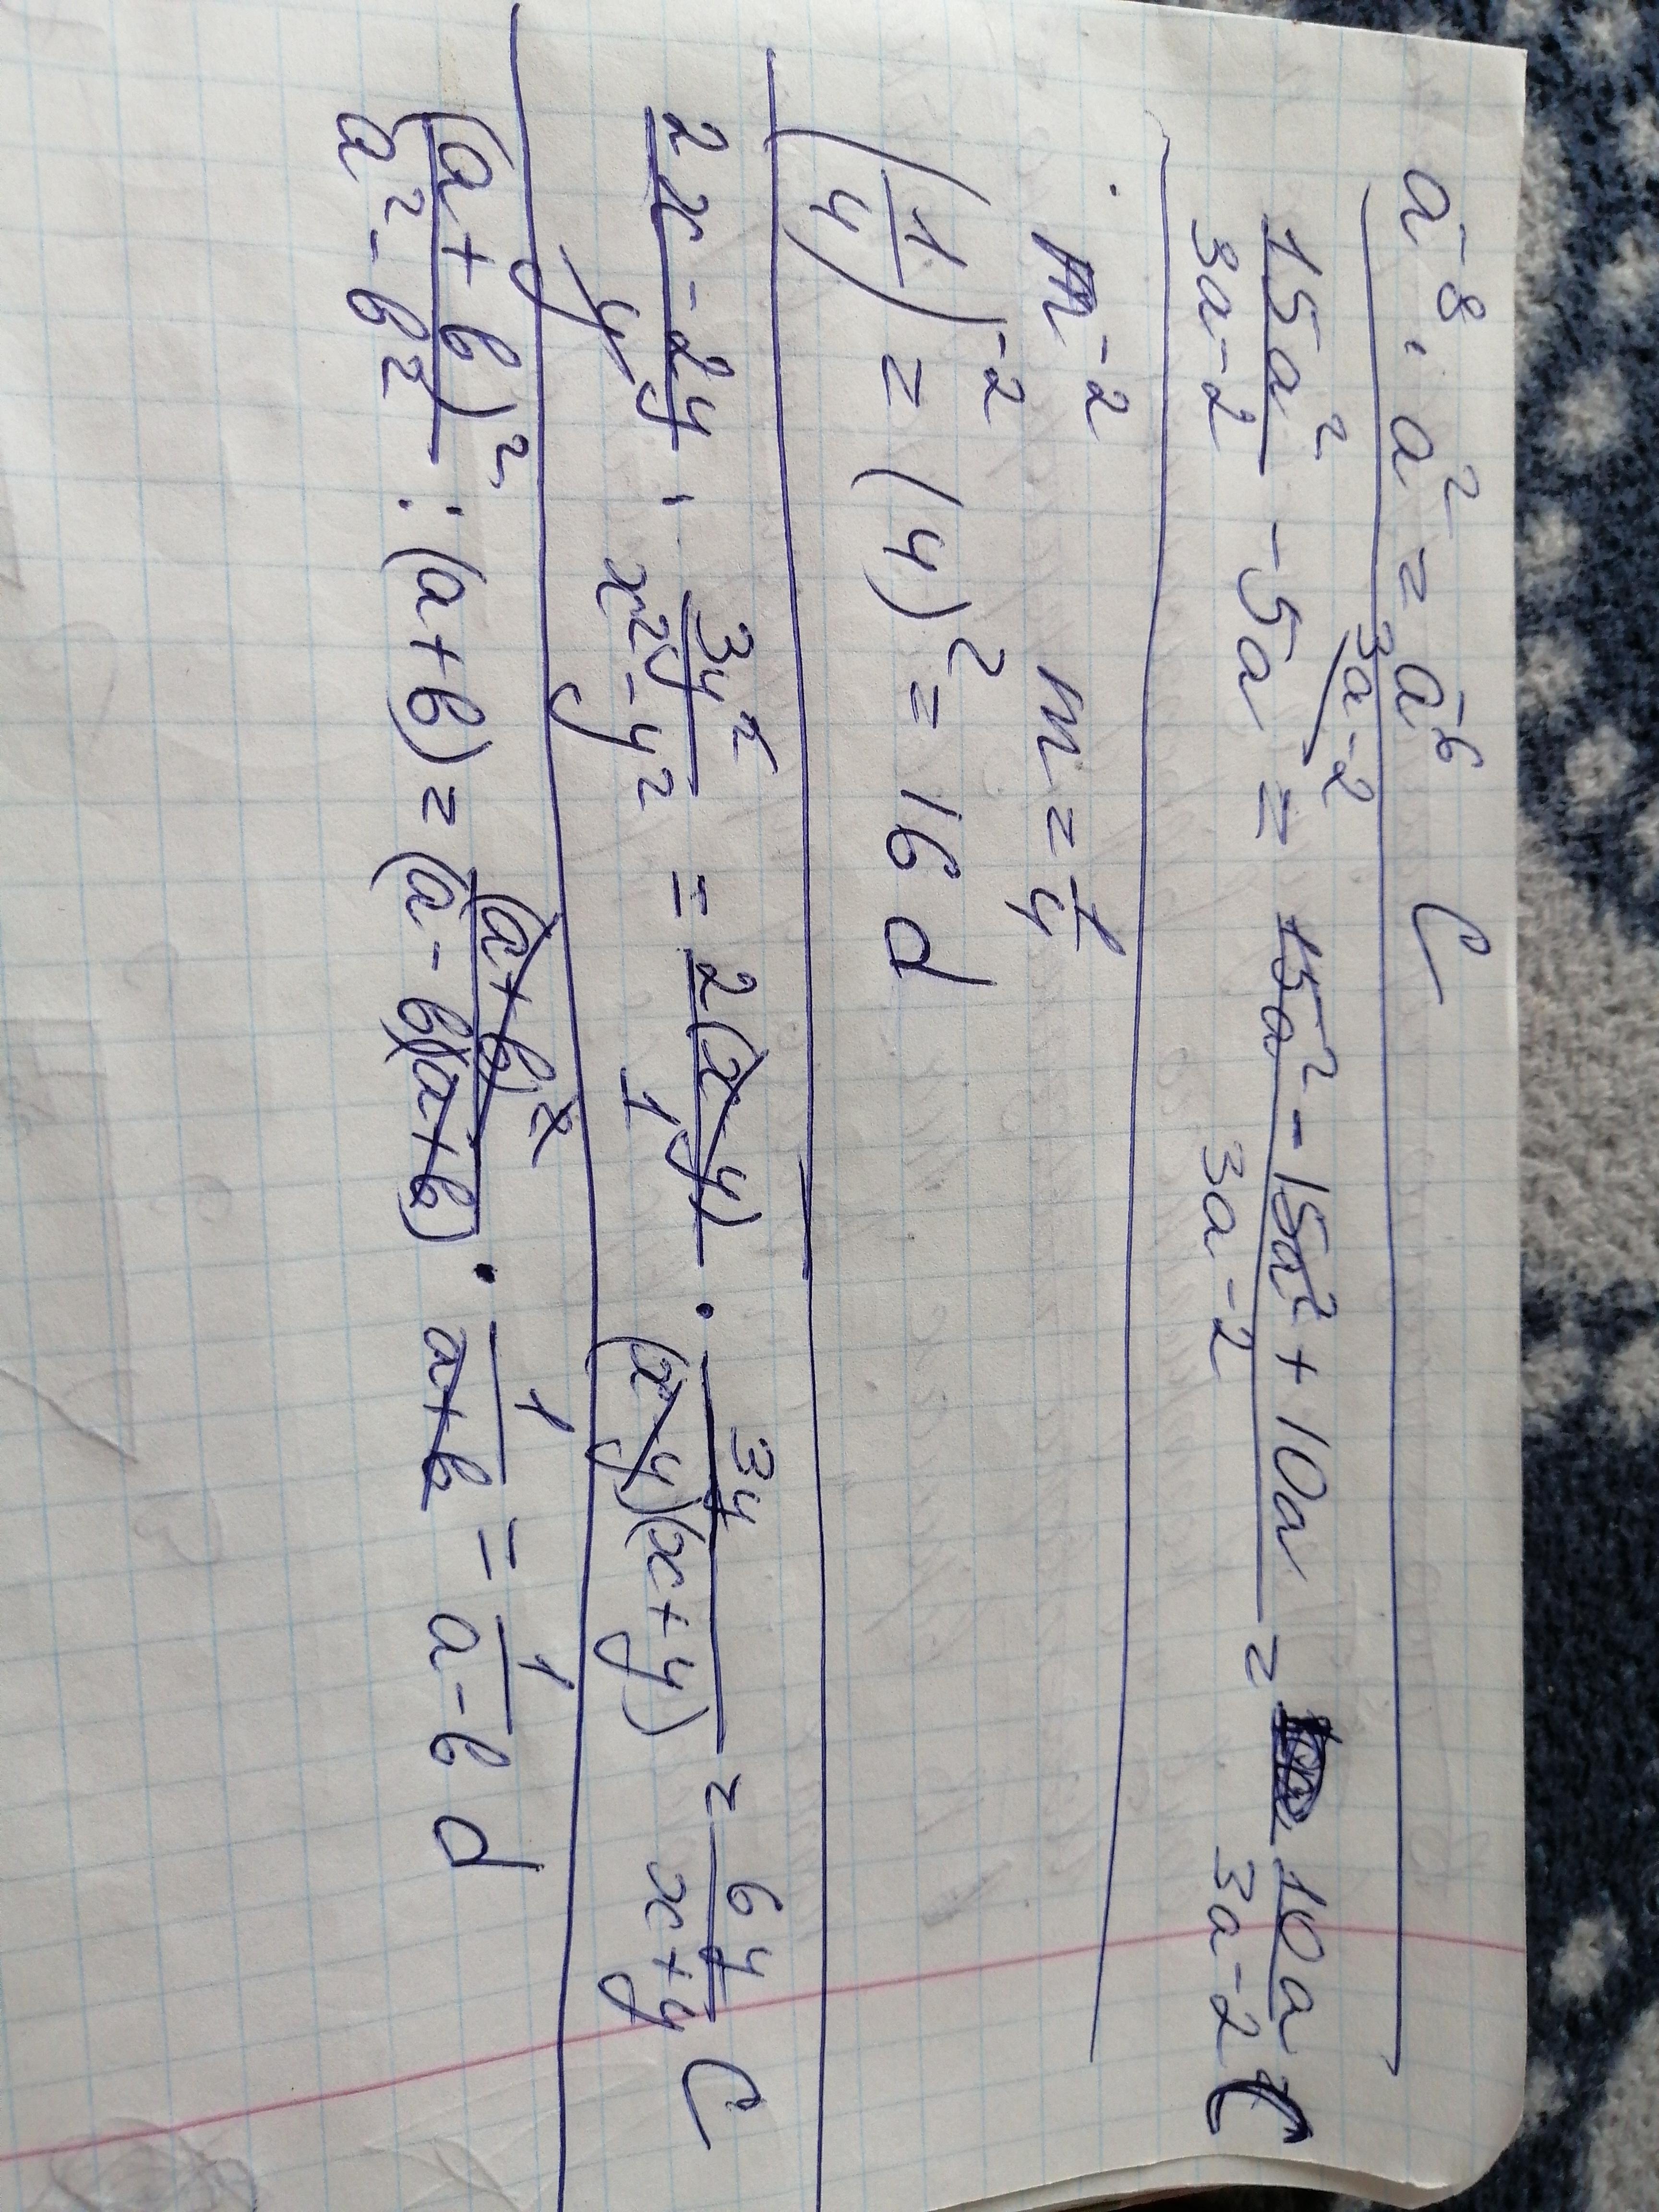 a⁻⁸ · a² = a⁻⁶ C
15a²/(3a-2) - 5a /3a-2 = (15a² - 15a² + 10a)/(3a-2) = 10a/(3a-2) C
m⁻² m = 1/4
(1/4)⁻² = (4)² = 16 d
(2x - 2y)/y · 3y²/(x² - y²) = 2(x-y)/1 · 3y/((x-y)(x+y)) = 6y/(x+y) C
(a+b)²/(a² - b²) : (a+b) = (a+b)²/((a-b)(a+b)) · 1/(a+b) = 1/(a-b) d